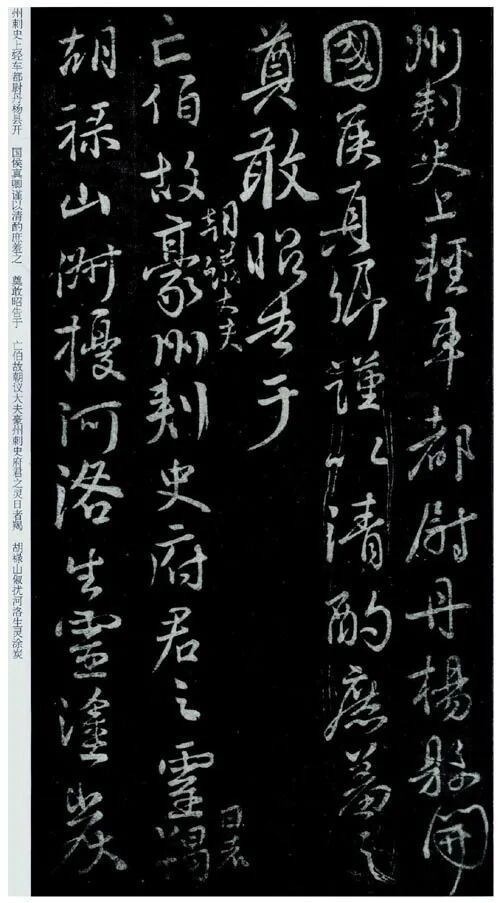 州刺史上輕車都尉丹楊縣開
國侯真卿謹以清酌庶羞之
奠敢昭告于
朝議大夫
亡伯故豪州刺史府君之靈羯
日者
胡祿山俶擾河洛生靈塗炭
州刺史上轻车都尉丹杨县开 国侯真卿谨以清酌庶羞之 奠敢昭告于 亡伯故朝议大夫豪州刺史府君之灵日者羯 胡禄山俶扰河洛生灵涂炭